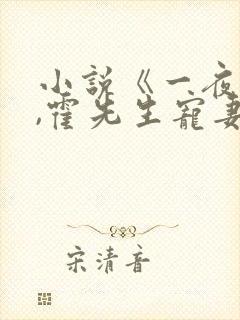 小说《一夜
,霍先生宠妻
宋清音